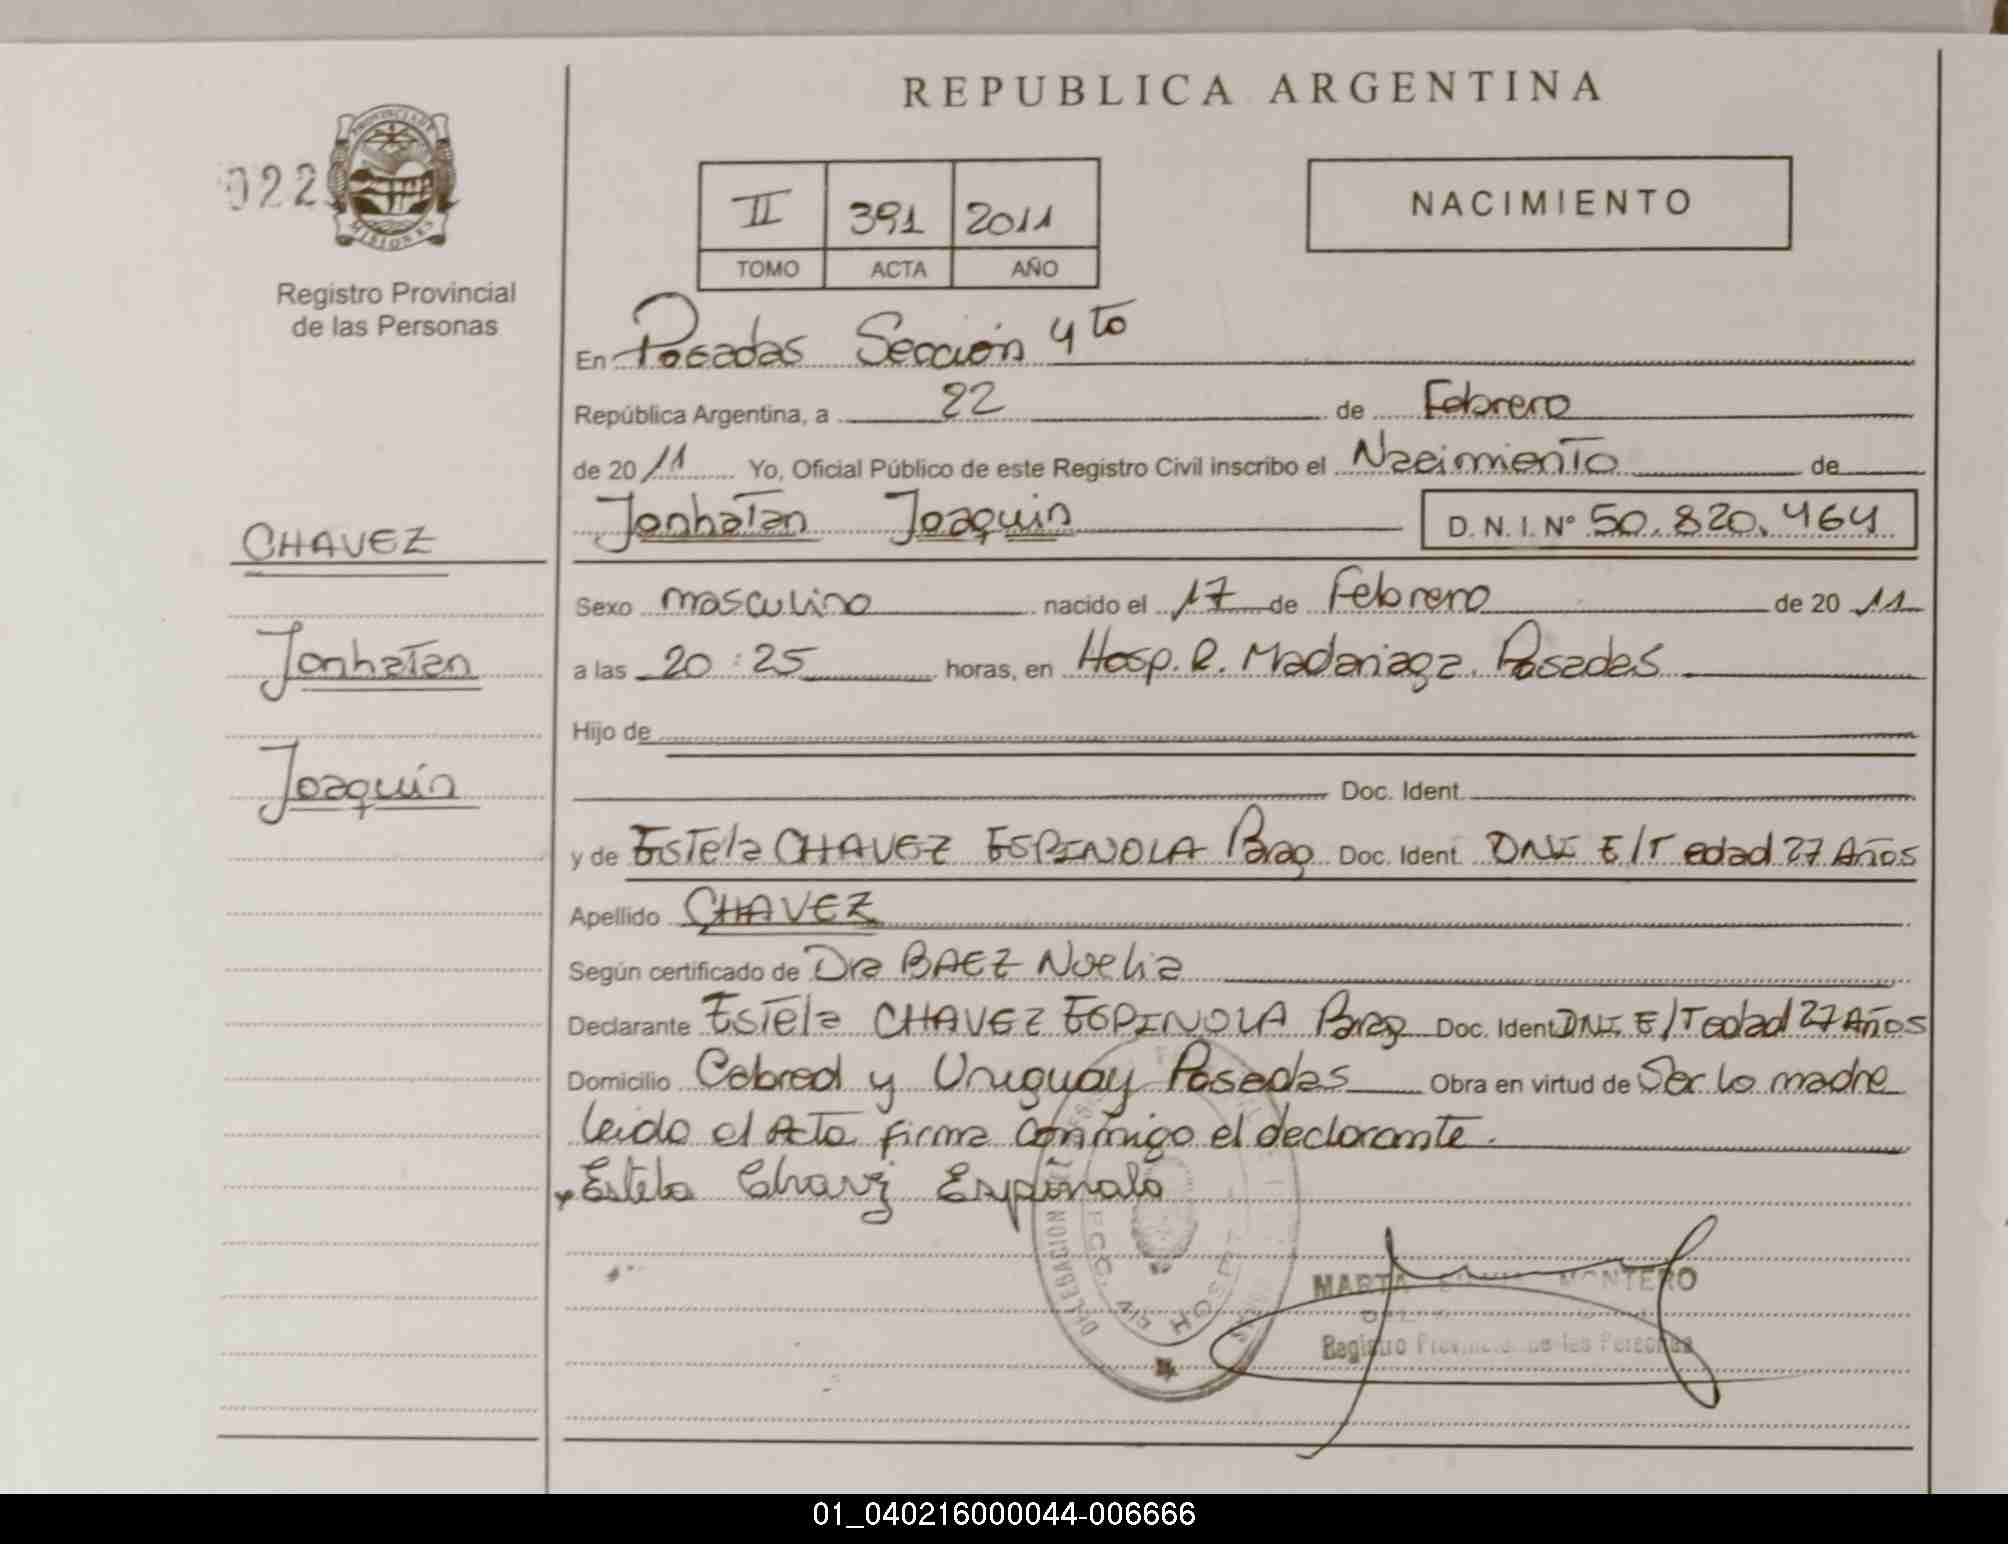 REPUBLICA ARGENTINA
022
PROVINCIA DE
MISIONES
Registro Provincial
de las Personas
II 391 2011
TOMO ACTA AÑO
NACIMIENTO
En Posadas Sección 4to
República Argentina, a 22 de Febrero
de 2011 Yo, Oficial Público de este Registro Civil inscribo el Nacimiento de
Jonhatan Joaquin D. N. I. Nº 50.820.464
CHAVEZ
Jonhatan
Joaquin
Sexo masculino nacido el 17 de Febrero de 2011
a las 20:25 horas, en Hosp. R. Madariaga. Posadas
Hijo de
Doc. Ident.
y de Estela CHAVEZ ESPINOLA Parag Doc. Ident. DNI E/T edad 27 Años
Apellido CHAVEZ
Según certificado de Dra BAEZ Noelia
Declarante Estela CHAVEZ ESPINOLA Parag Doc. Ident DNI E/T edad 27 Años
Domicilio Cabred y Uruguay Posadas Obra en virtud de Ser la madre
leido el Acta firma conmigo el declarante.
Estela Chavez Espinola
DELEGACION
HOSPT
MARTA MONTERO
Registro Provincial de las Personas
01_040216000044-006666